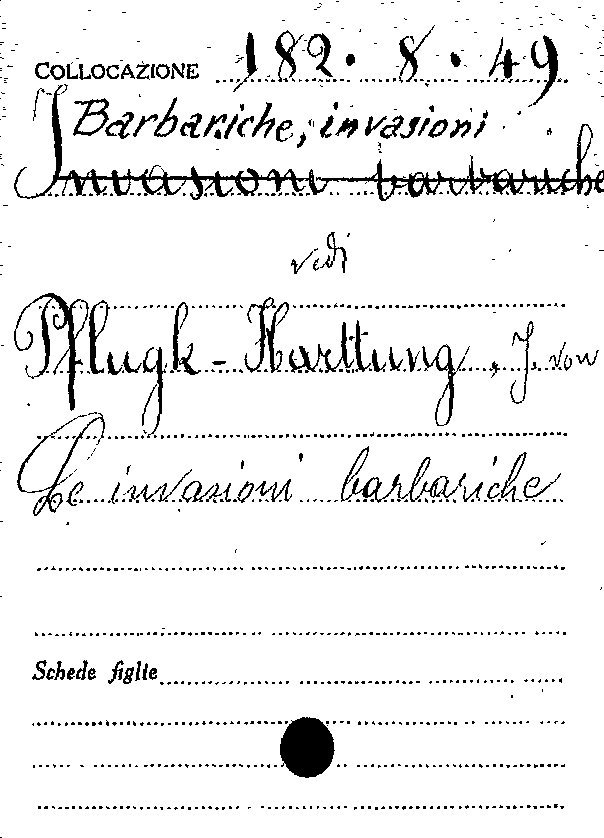 COLLOCAZIONE 182. 8. 49
Barbariche, invasioni
Invasioni barbariche
vedi
Pflugk-Harttung, J. von
Le invasioni barbariche
Schede figlie